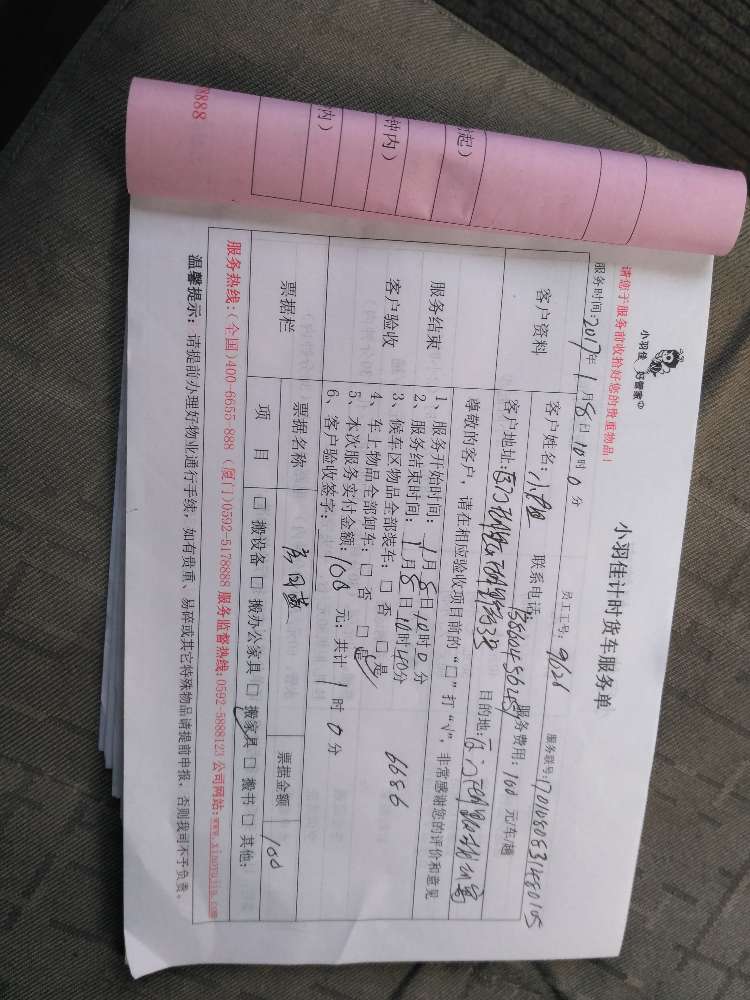 8888
起)
钟内)
内)
小羽佳 好管家
小羽佳计时货车服务单
请您于服务前收拾好您的贵重物品!
员工工号: 9626
服务联号:
服务时间:2017年 1月8日10时0分
客户资料
客户姓名:
联系电话:
服务费用: 100 元/车/趟
客户地址:
目的地:
尊敬的客户, 请在相应验收项目前的“□”打“√”, 非常感谢您的评价和意见
服务结束
1、服务开始时间: 1月8日10时0分
2、服务结束时间: 1月8日10时40分
客户验收
3、候车区物品全部装车: □ 否 □ 是
4、车上物品全部卸车: □ 否 □ 是
5、本次服务实付金额: 100 元; 共计 1 时 0 分
6、客户验收签字:
6686
票据栏
票据名称
票据金额
100
项 目
□ 搬设备 □ 搬办公家具 □ 搬家具 □ 搬书 □ 其他:
服务热线:(全国)400-6655-888 (厦门)0592-5178888 服务监督热线:0592-5888123 公司网站:www.xiaoyujia.com
温馨提示: 请提前办理好物业通行手续, 如有贵重、易碎或其它特殊物品请提前申报, 否则我司不予负责。